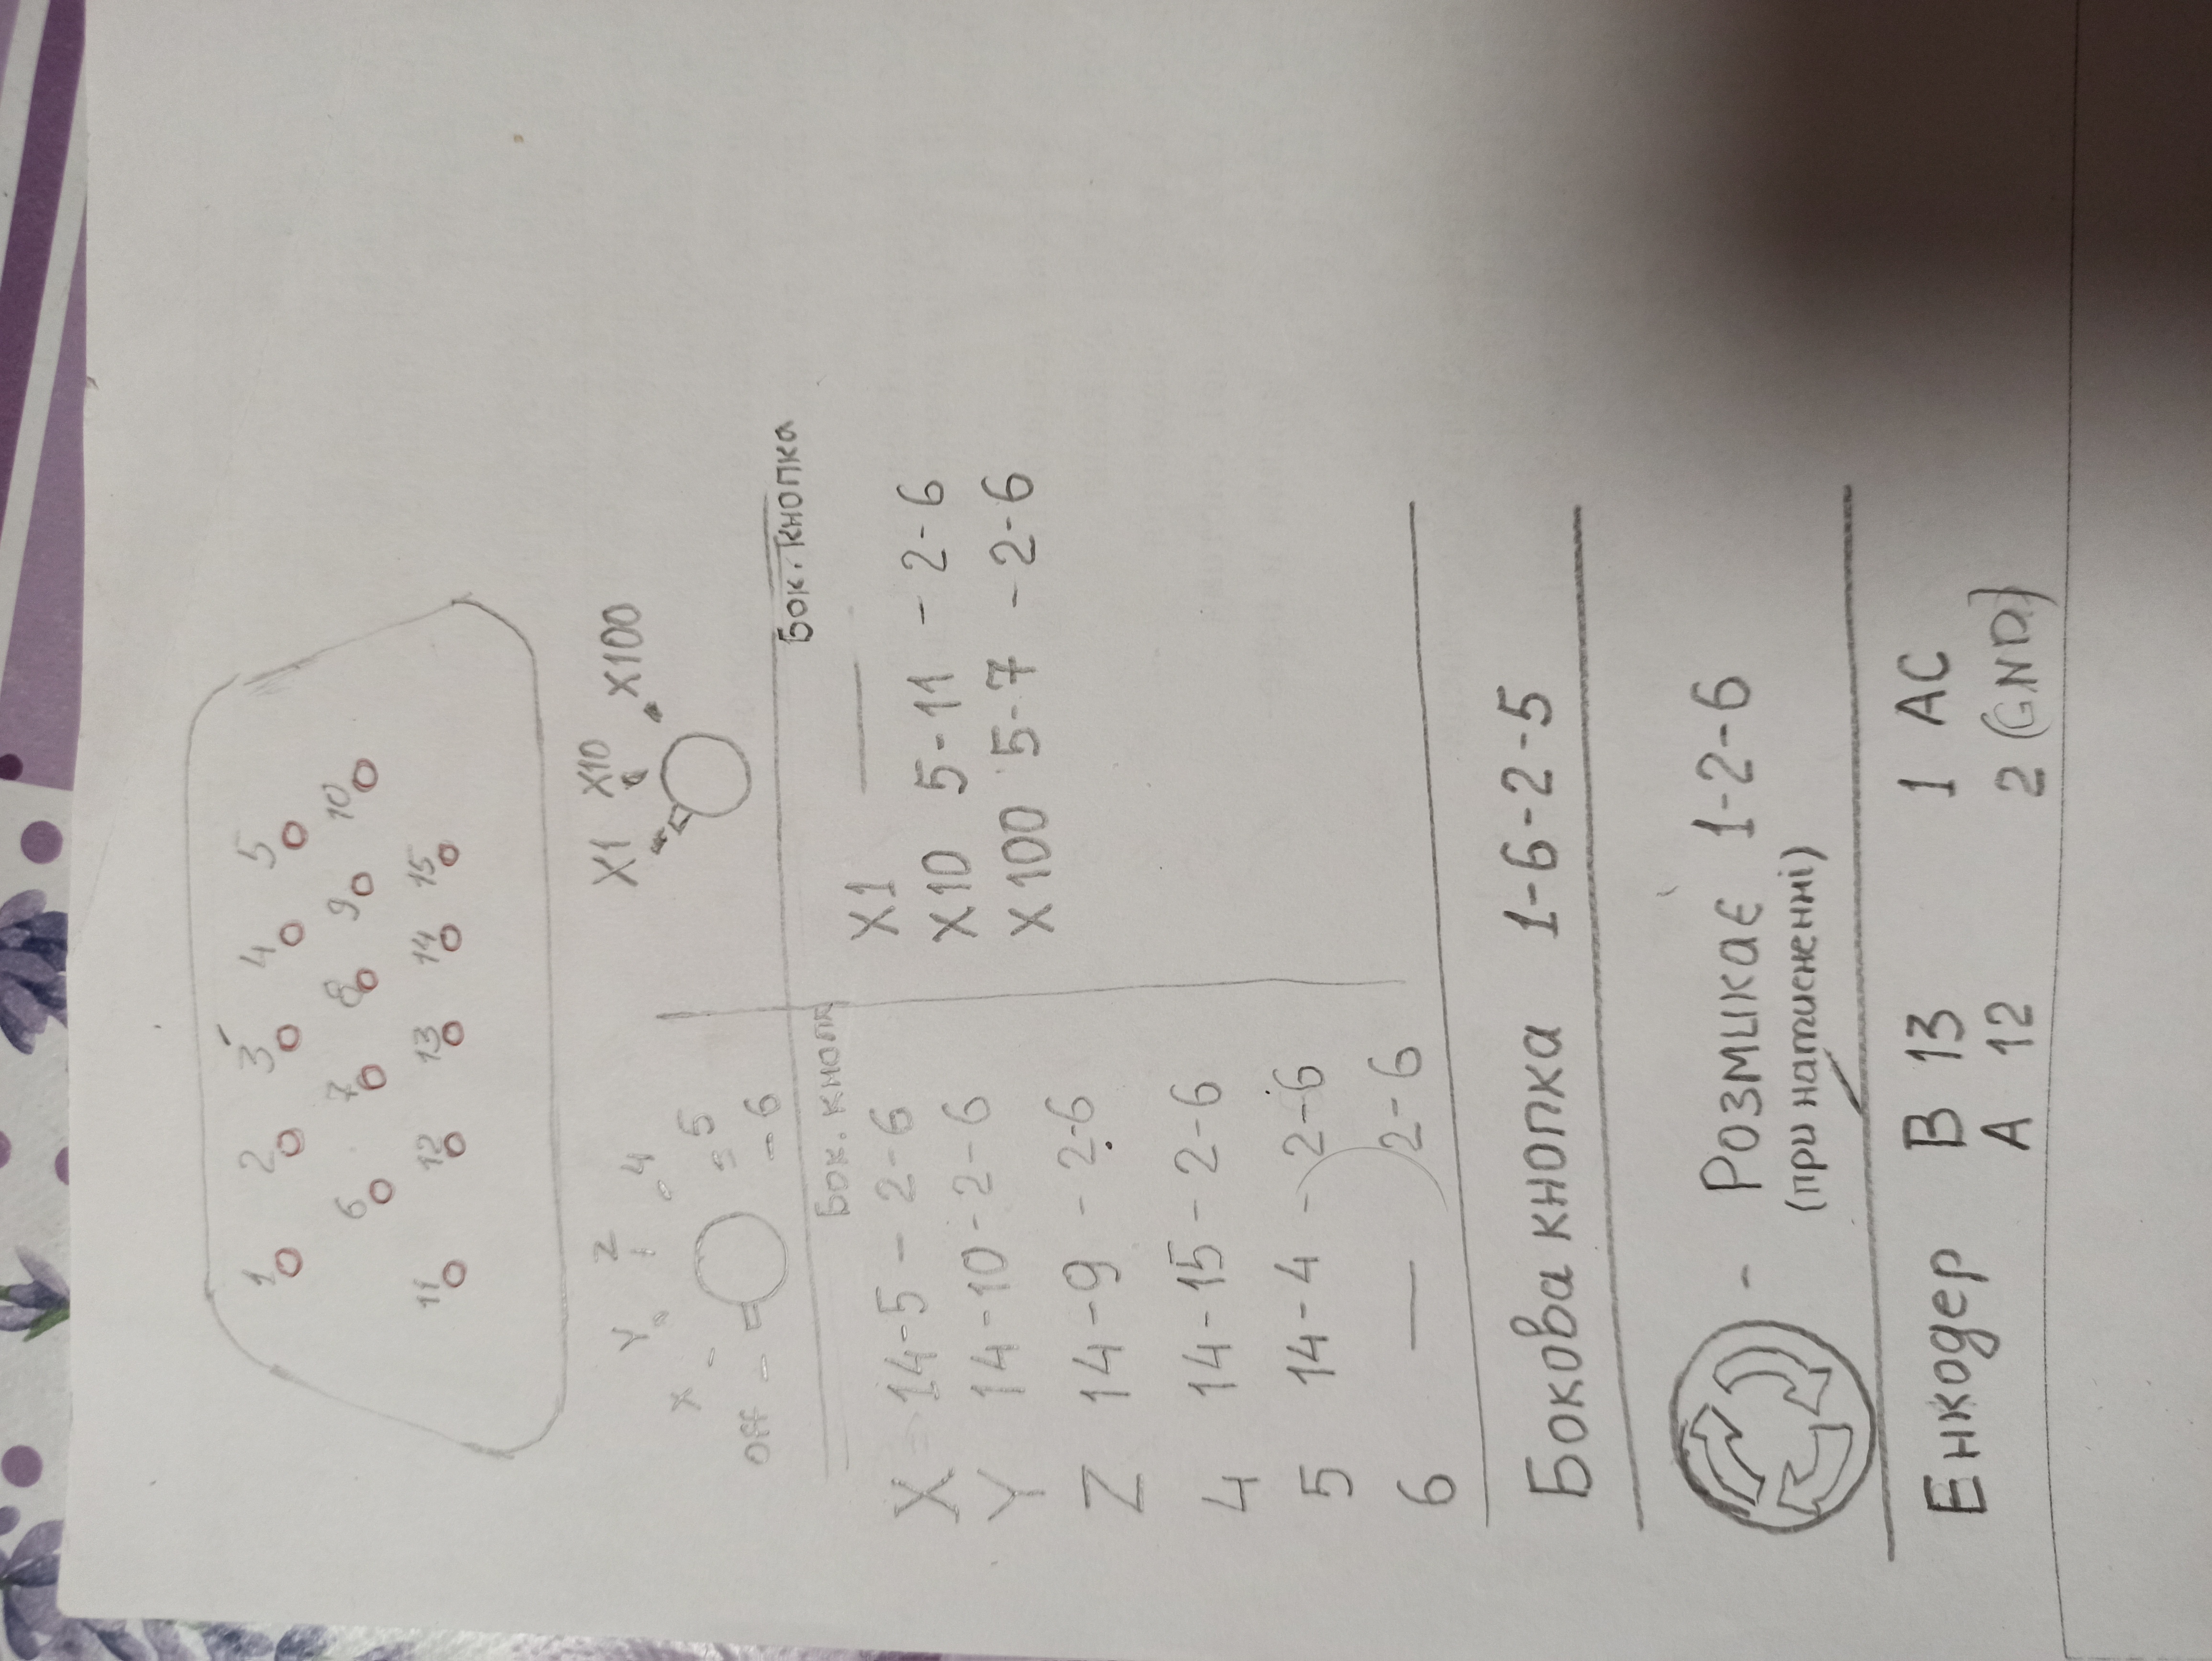 1 2 3 4 5
6 7 8 9 10
11 12 13 14 15
X Y Z 4
OFF 5
6
X1 X10 X100
Бок. кнопк
Бок. кнопка
X = 14-5 - 2-6
Y 14-10-2-6
Z 14-9 - 2-6
4 14-15-2-6
5 14-4 - 2-6
6 — 2-6
X1 —
X10 5-11 - 2-6
X100 5-7 - 2-6
Бокова кнопка 1-6-2-5
- Розмикає 1-2-6
(при натисненні)
Енкодер B 13 1 AC
A 12 2 (GND)